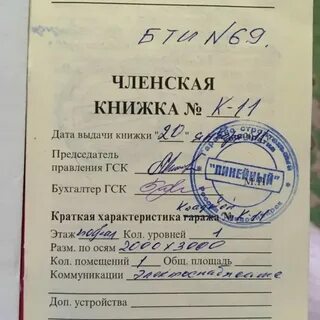 БТИ №69.
ЧЛЕНСКАЯ
КНИЖКА № К-11
Дата выдачи книжки "20"
Председатель
правления ГСК
Бухгалтер ГСК
"ЛИНЕЙНЫЙ"
Краткая характеристика гаража № К-11
Этаж подвал Кол. уровней 1
Разм. по осям 2000х3000
Кол. помещений 1 Общ. площадь
Коммуникации Электроснабжение
Доп. устройства